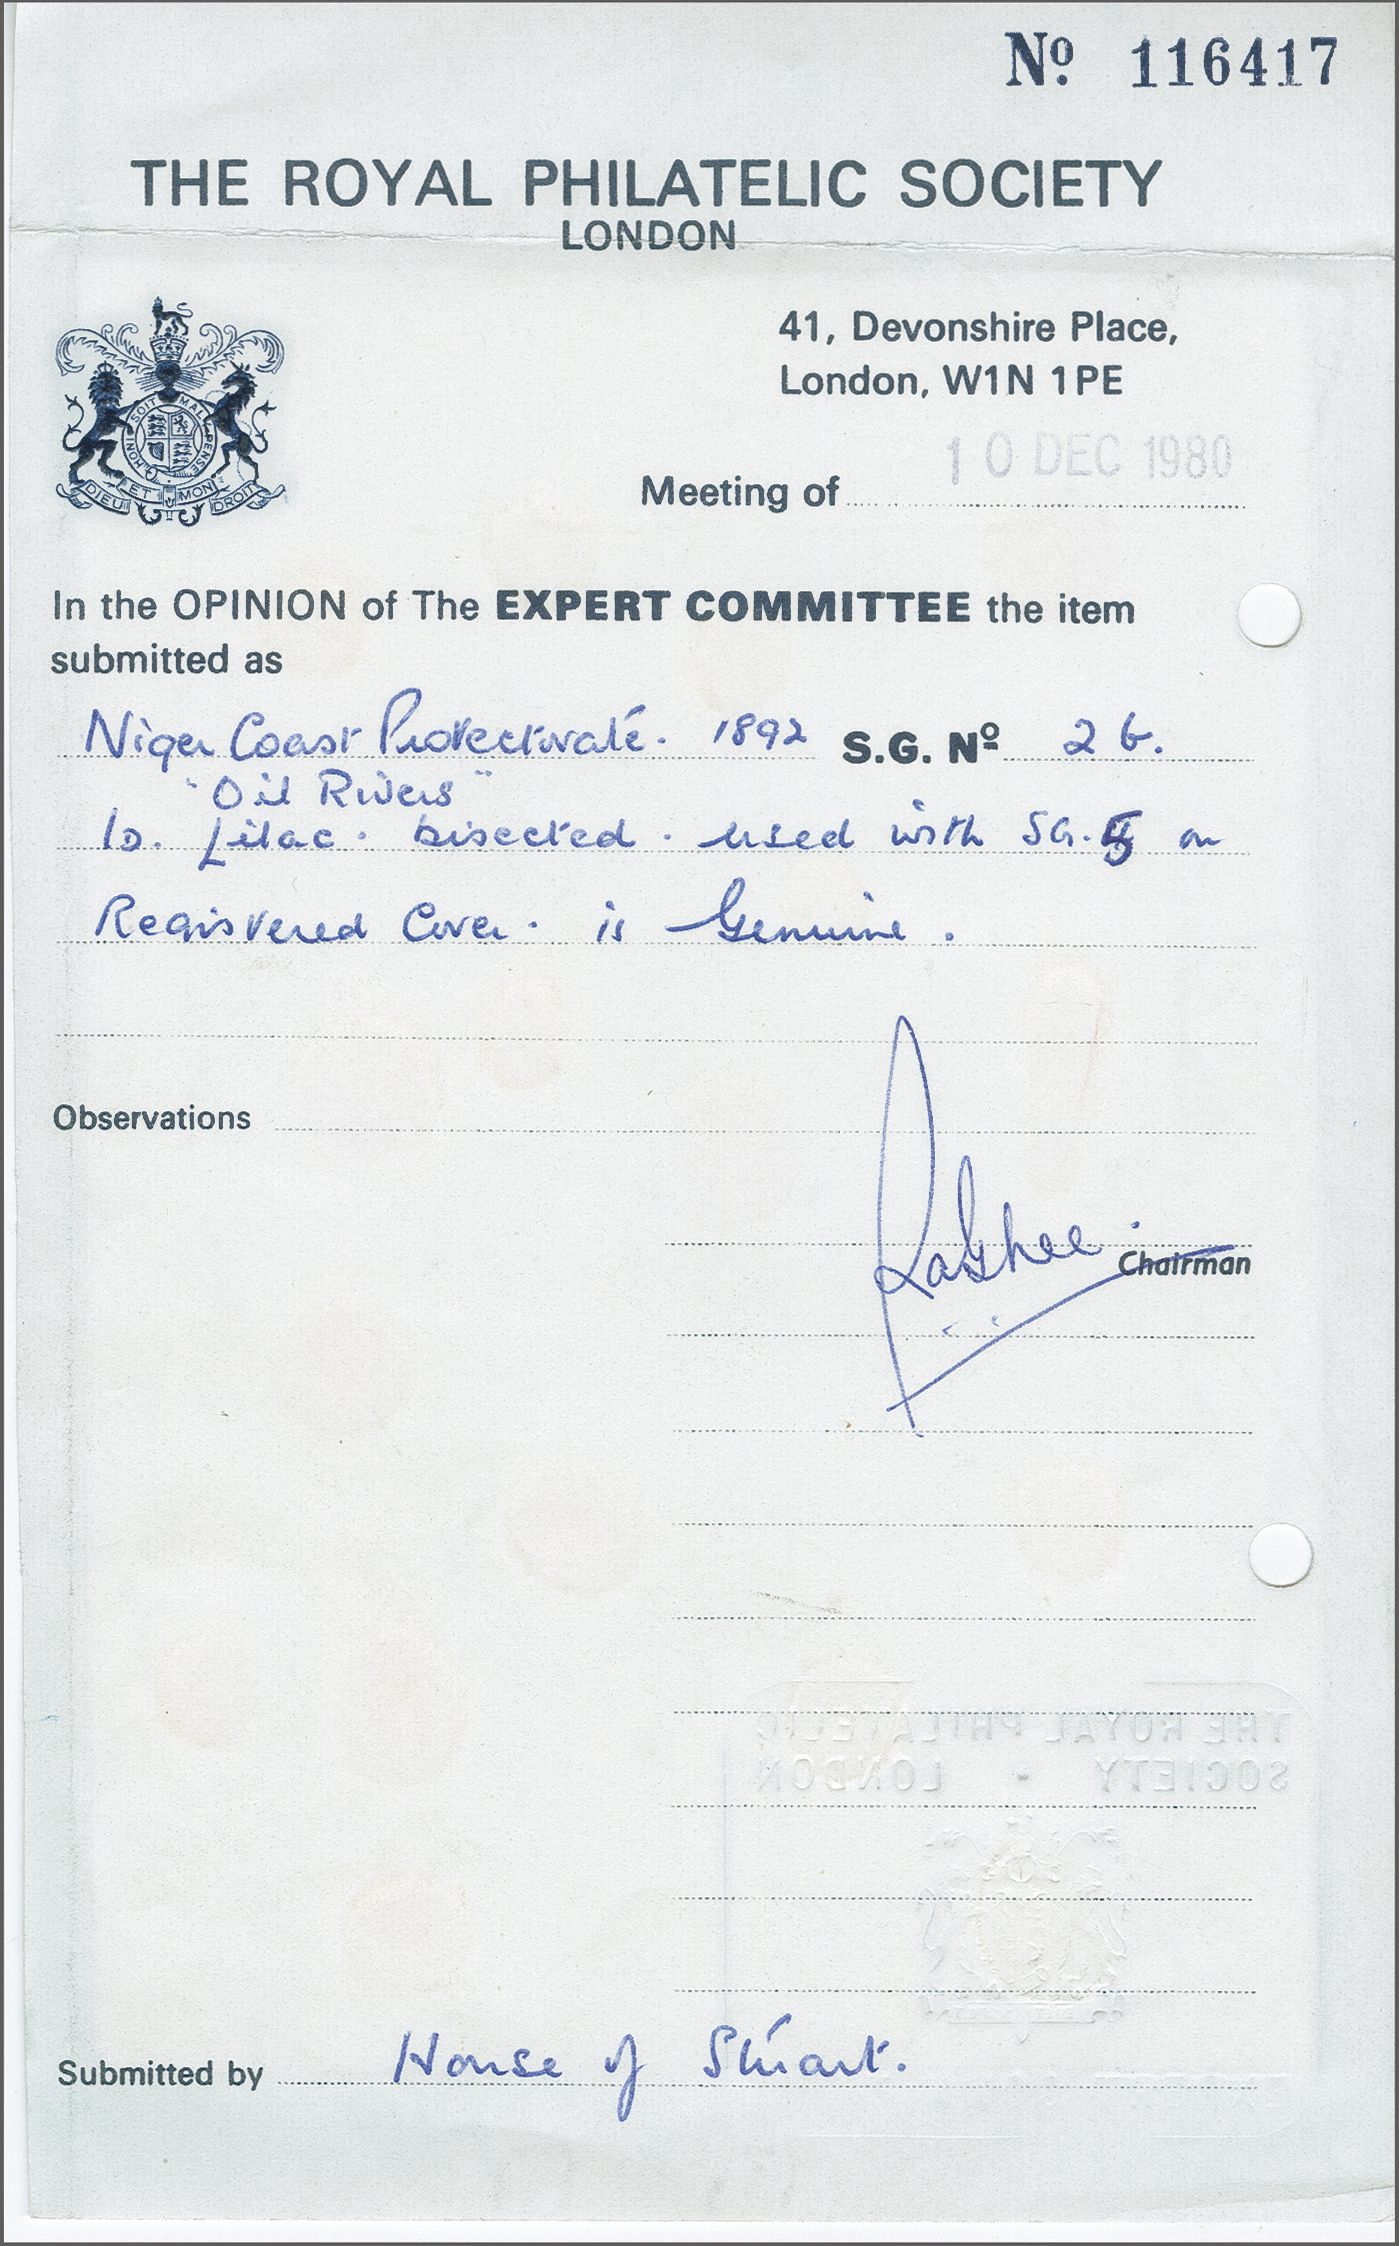 Nº 116417
THE ROYAL PHILATELIC SOCIETY
LONDON
41, Devonshire Place,
London, W1N 1PE
HONI SOIT MAL PENSE
DIEU ET MON DROIT
10 DEC 1980
Meeting of
In the OPINION of The EXPERT COMMITTEE the item
submitted as
Niger Coast Protectorate. 1892 S.G. Nº 2b.
"Oil Rivers"
1D. Lilac. bisected. used with SG. 5 on
Registered Cover. is Genuine.
Observations
Chairman
THE ROYAL PHILATELIC
SOCIETY • LONDON
Submitted by House of Stuart.